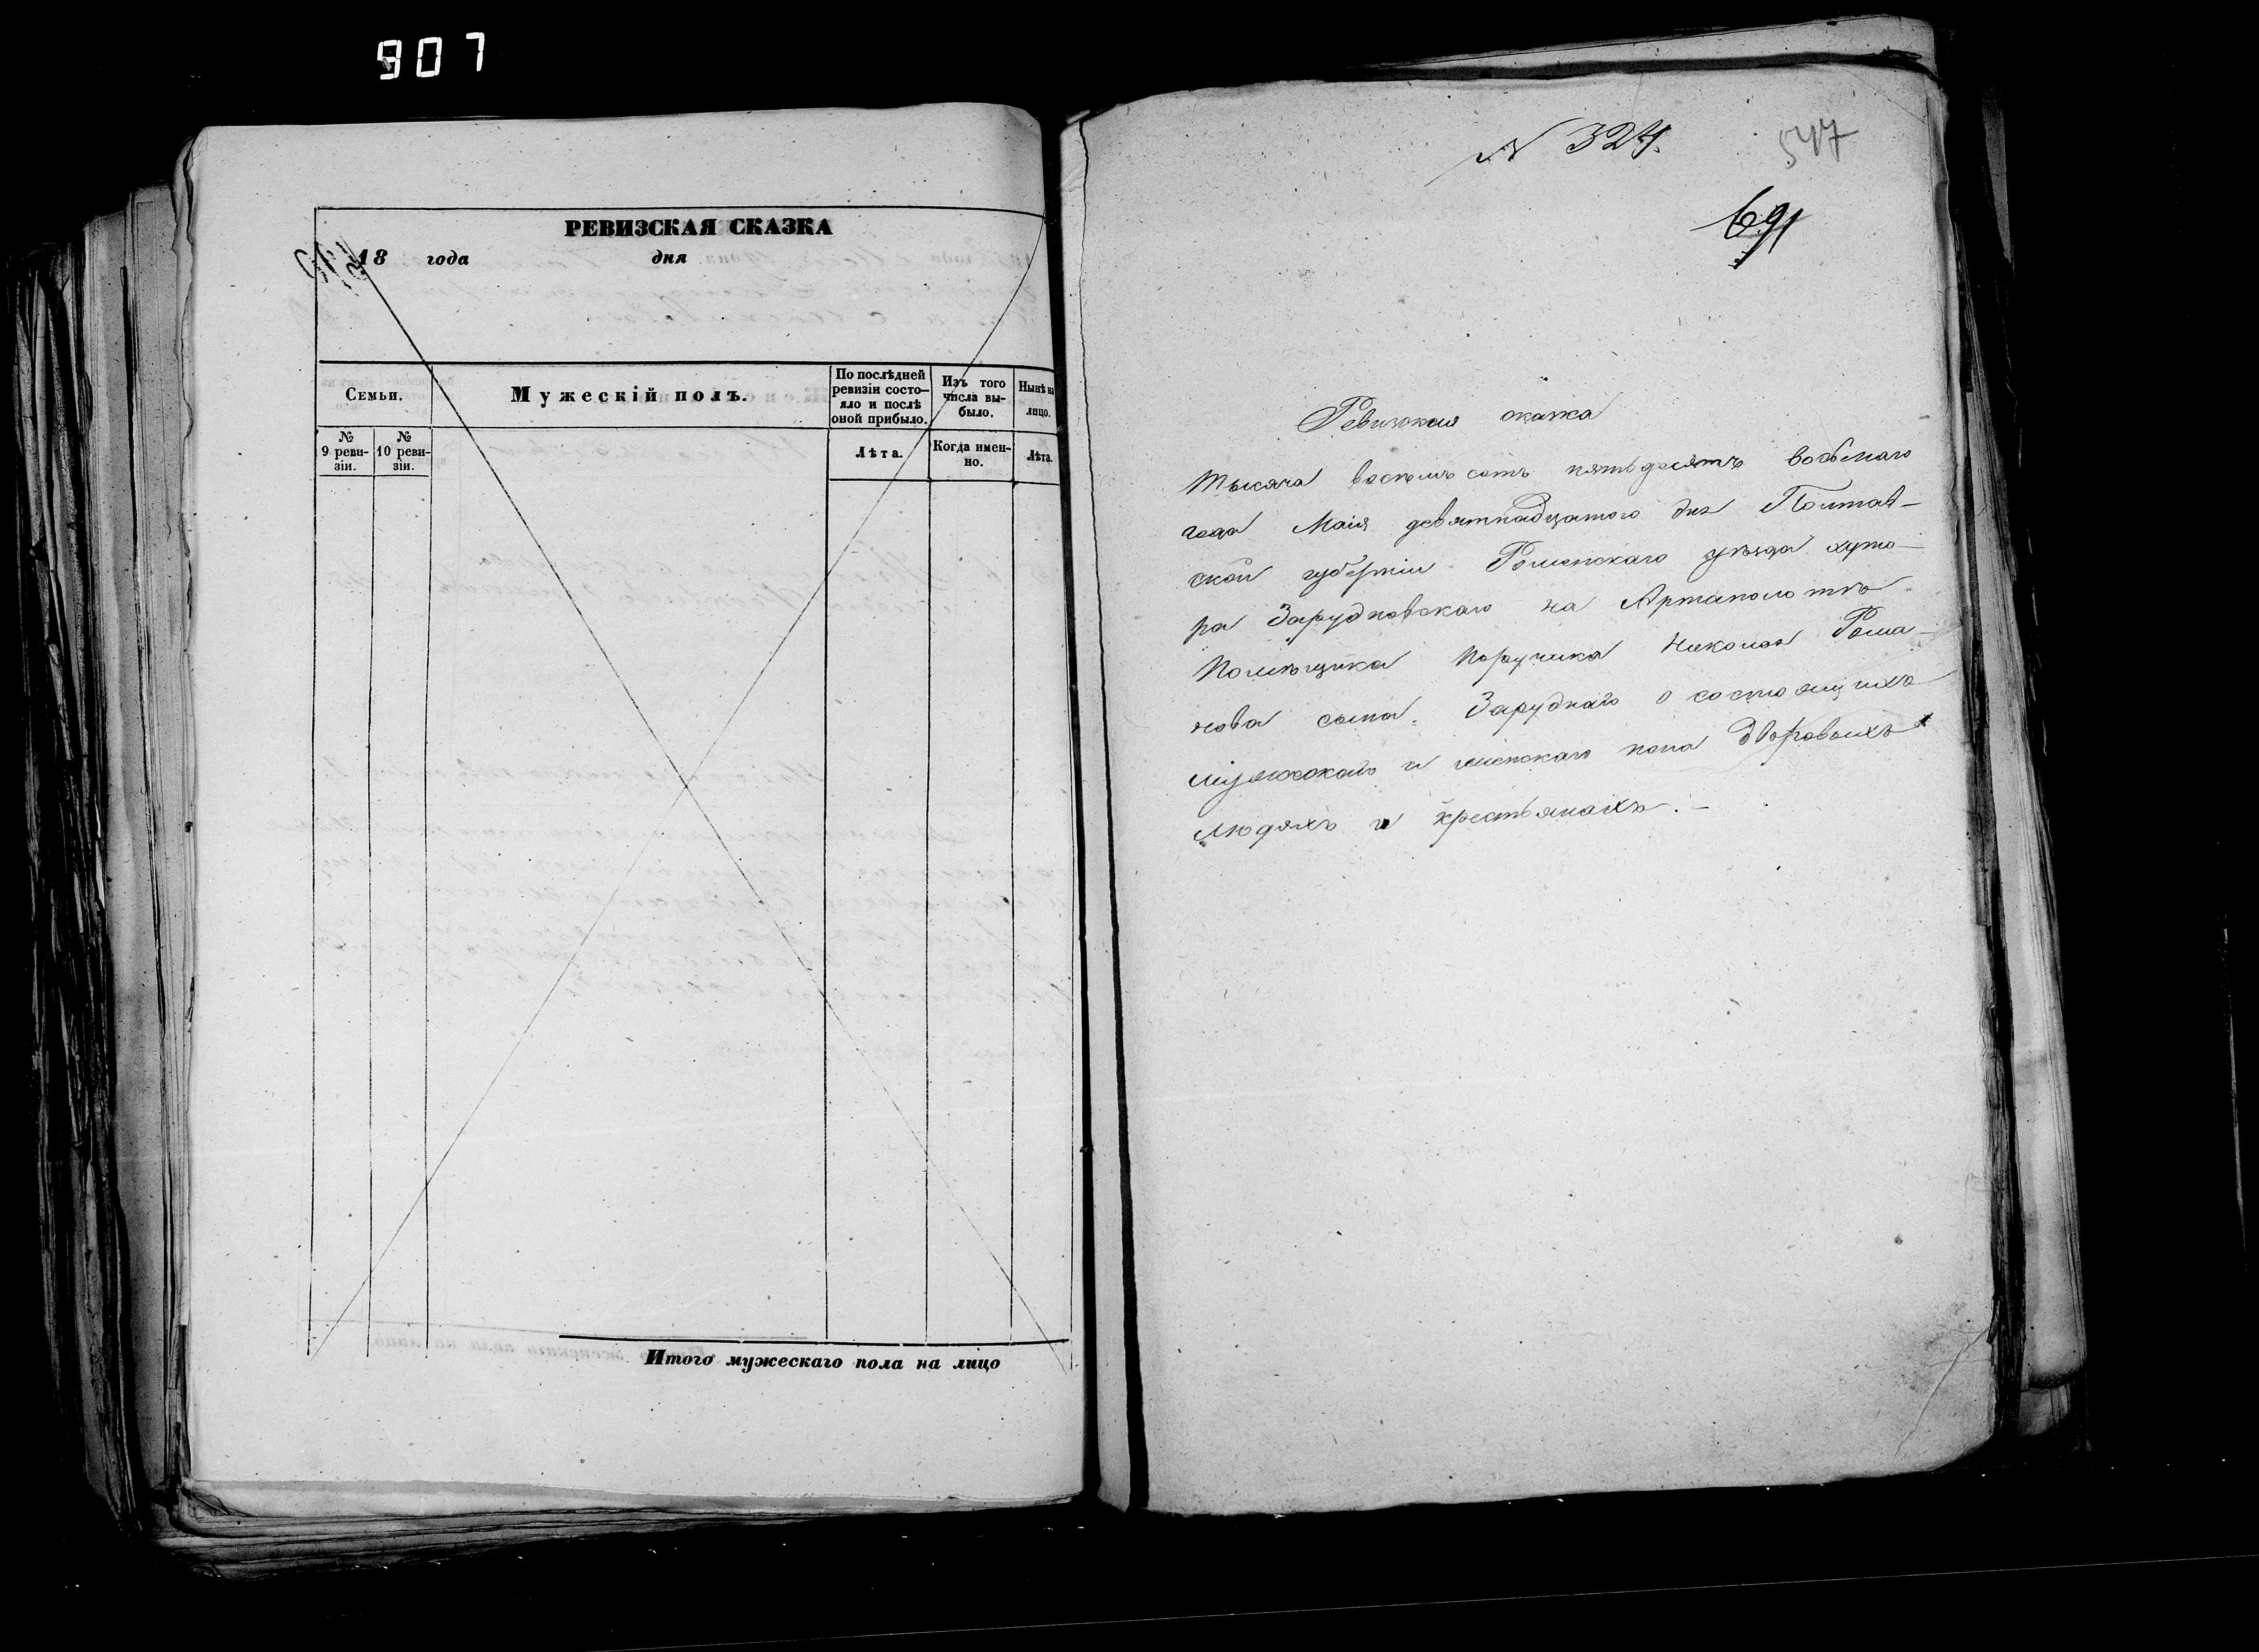 907
РЕВИЗСКАЯ СКАЗКА
18 года дня
Семьи.
Мужескій полъ.
По послѣдней ревизіи состо-
яло и послѣ
оной прибыло.
Изъ того
числа вы-
было.
Нынѣ на
лицо.
№
9 реви-
зіи.
№
10 реви-
зіи.
Лѣта.
Когда имен-
но.
Лѣта.
Итого мужескаго пола на лицо
№ 324.
547
691
Ревизская сказка
Тысяча восемьсотъ пятьдесятъ восьмаго
года Маія девятнадцатого дня Полтав-
ской губерніи Роменскаго уѣзда хуто-
ра Зарудновскаго на Артаполотѣ
Помѣщика Поручика Николая Рома-
нова сына Заруднаго о состоящихъ
мужескаго и женскаго пола дворовыхъ
людяхъ и крестьянахъ.-